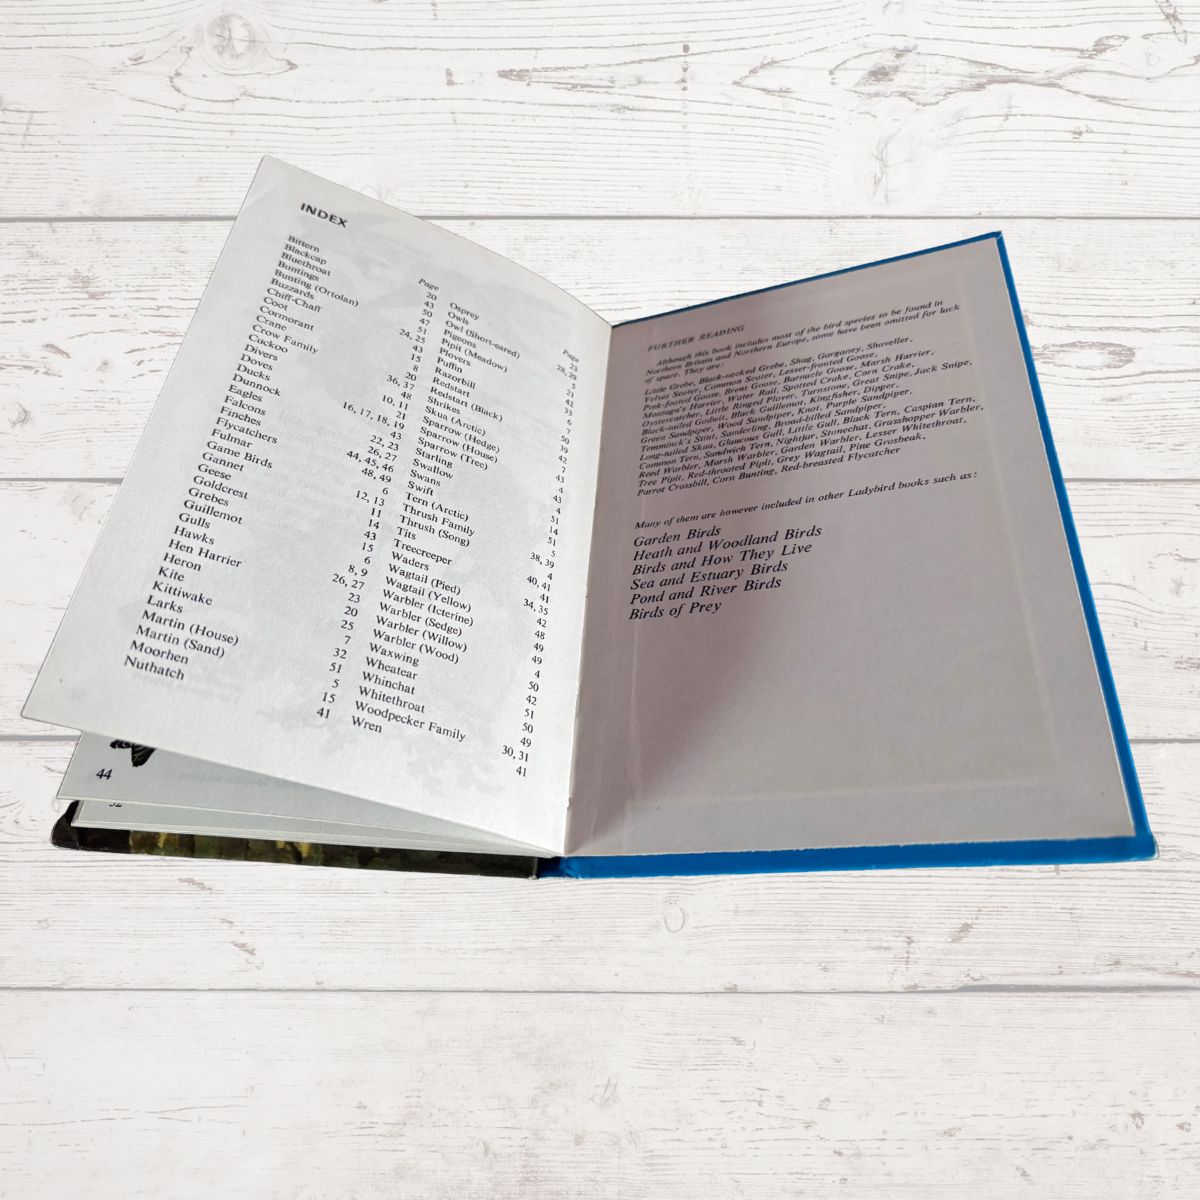 INDEX
Page
Bittern 20
Blackcap 43
Bluethroat 50
Buntings 47
Bunting (Ortolan) 51
Buzzards 24, 25
Chiff-Chaff 43
Coot 15
Cormorant 8
Crane 20
Crow Family 36, 37
Cuckoo 48
Divers 10, 11
Doves 21
Ducks 16, 17, 18, 19
Dunnock 43
Eagles 22, 23
Falcons 26, 27
Finches 44, 45, 46
Flycatchers 48, 49
Fulmar 6
Game Birds 12, 13
Gannet 11
Geese 14
Goldcrest 43
Grebes 15
Guillemot 6
Gulls 8, 9
Hawks 26, 27
Hen Harrier 23
Heron 20
Kite 25
Kittiwake 7
Larks 32
Martin (House) 51
Martin (Sand) 5
Moorhen 15
Nuthatch 41
Page
Osprey 23
Owls 28, 29
Owl (Short-eared) 5
Pigeons 21
Pipit (Meadow) 42
Plovers 33
Puffin 6
Razorbill 7
Redstart 50
Redstart (Black) 39
Shrikes 42
Skua (Arctic) 7
Sparrow (Hedge) 43
Sparrow (House) 4
Sparrow (Tree) 43
Starling 4
Swallow 51
Swans 14
Swift 51
Tern (Arctic) 5
Thrush Family 38, 39
Thrush (Song) 4
Tits 40, 41
Treecreeper 41
Waders 34, 35
Wagtail (Pied) 42
Wagtail (Yellow) 48
Warbler (Icterine) 49
Warbler (Sedge) 49
Warbler (Willow) 4
Warbler (Wood) 50
Waxwing 42
Wheatear 51
Whinchat 50
Whitethroat 49
Woodpecker Family 30, 31
Wren 41
44
52
FURTHER READING
Although this book includes most of the bird species to be found in
Northern Britain and Northern Europe, some have been omitted for lack
of space. They are:
Little Grebe, Black-necked Grebe, Shag, Garganey, Shoveller,
Velvet Scoter, Common Scoter, Lesser-fronted Goose,
Pink-footed Goose, Brent Goose, Barnacle Goose, Marsh Harrier,
Montagu's Harrier, Water Rail, Spotted Crake, Corn Crake,
Oystercatcher, Little Ringed Plover, Turnstone, Great Snipe, Jack Snipe,
Black-tailed Godwit, Black Guillemot, Kingfisher, Dipper,
Green Sandpiper, Wood Sandpiper, Knot, Purple Sandpiper,
Temminck's Stint, Sanderling, Broad-billed Sandpiper,
Long-tailed Skua, Glaucous Gull, Little Gull, Black Tern, Caspian Tern,
Common Tern, Sandwich Tern, Nightjar, Stonechat, Grasshopper Warbler,
Reed Warbler, Marsh Warbler, Garden Warbler, Lesser Whitethroat,
Tree Pipit, Red-throated Pipit, Grey Wagtail, Pine Grosbeak,
Parrot Crossbill, Corn Bunting, Red-breasted Flycatcher
Many of them are however included in other Ladybird books such as:
Garden Birds
Heath and Woodland Birds
Birds and How They Live
Sea and Estuary Birds
Pond and River Birds
Birds of Prey